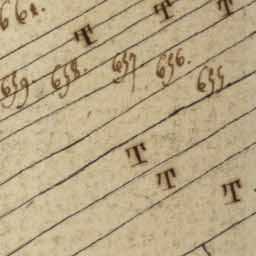 661.
T T T
659. 658. 657 656. 655
T
T
T